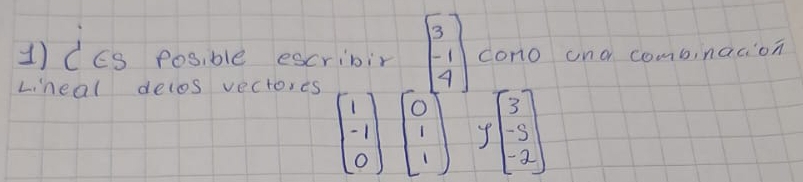 1) ¿ Es posible escribir [3 -1 4] como una combinación
Lineal delos vectores
[1 -1 0] [0 1 1] y [3 -5 -2]